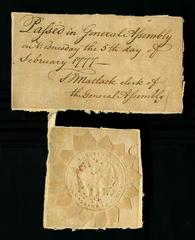 Passed in General Assembly
on Wednesday the 5th day of
February 1777—
T Matlack clerk of
the General Assembly